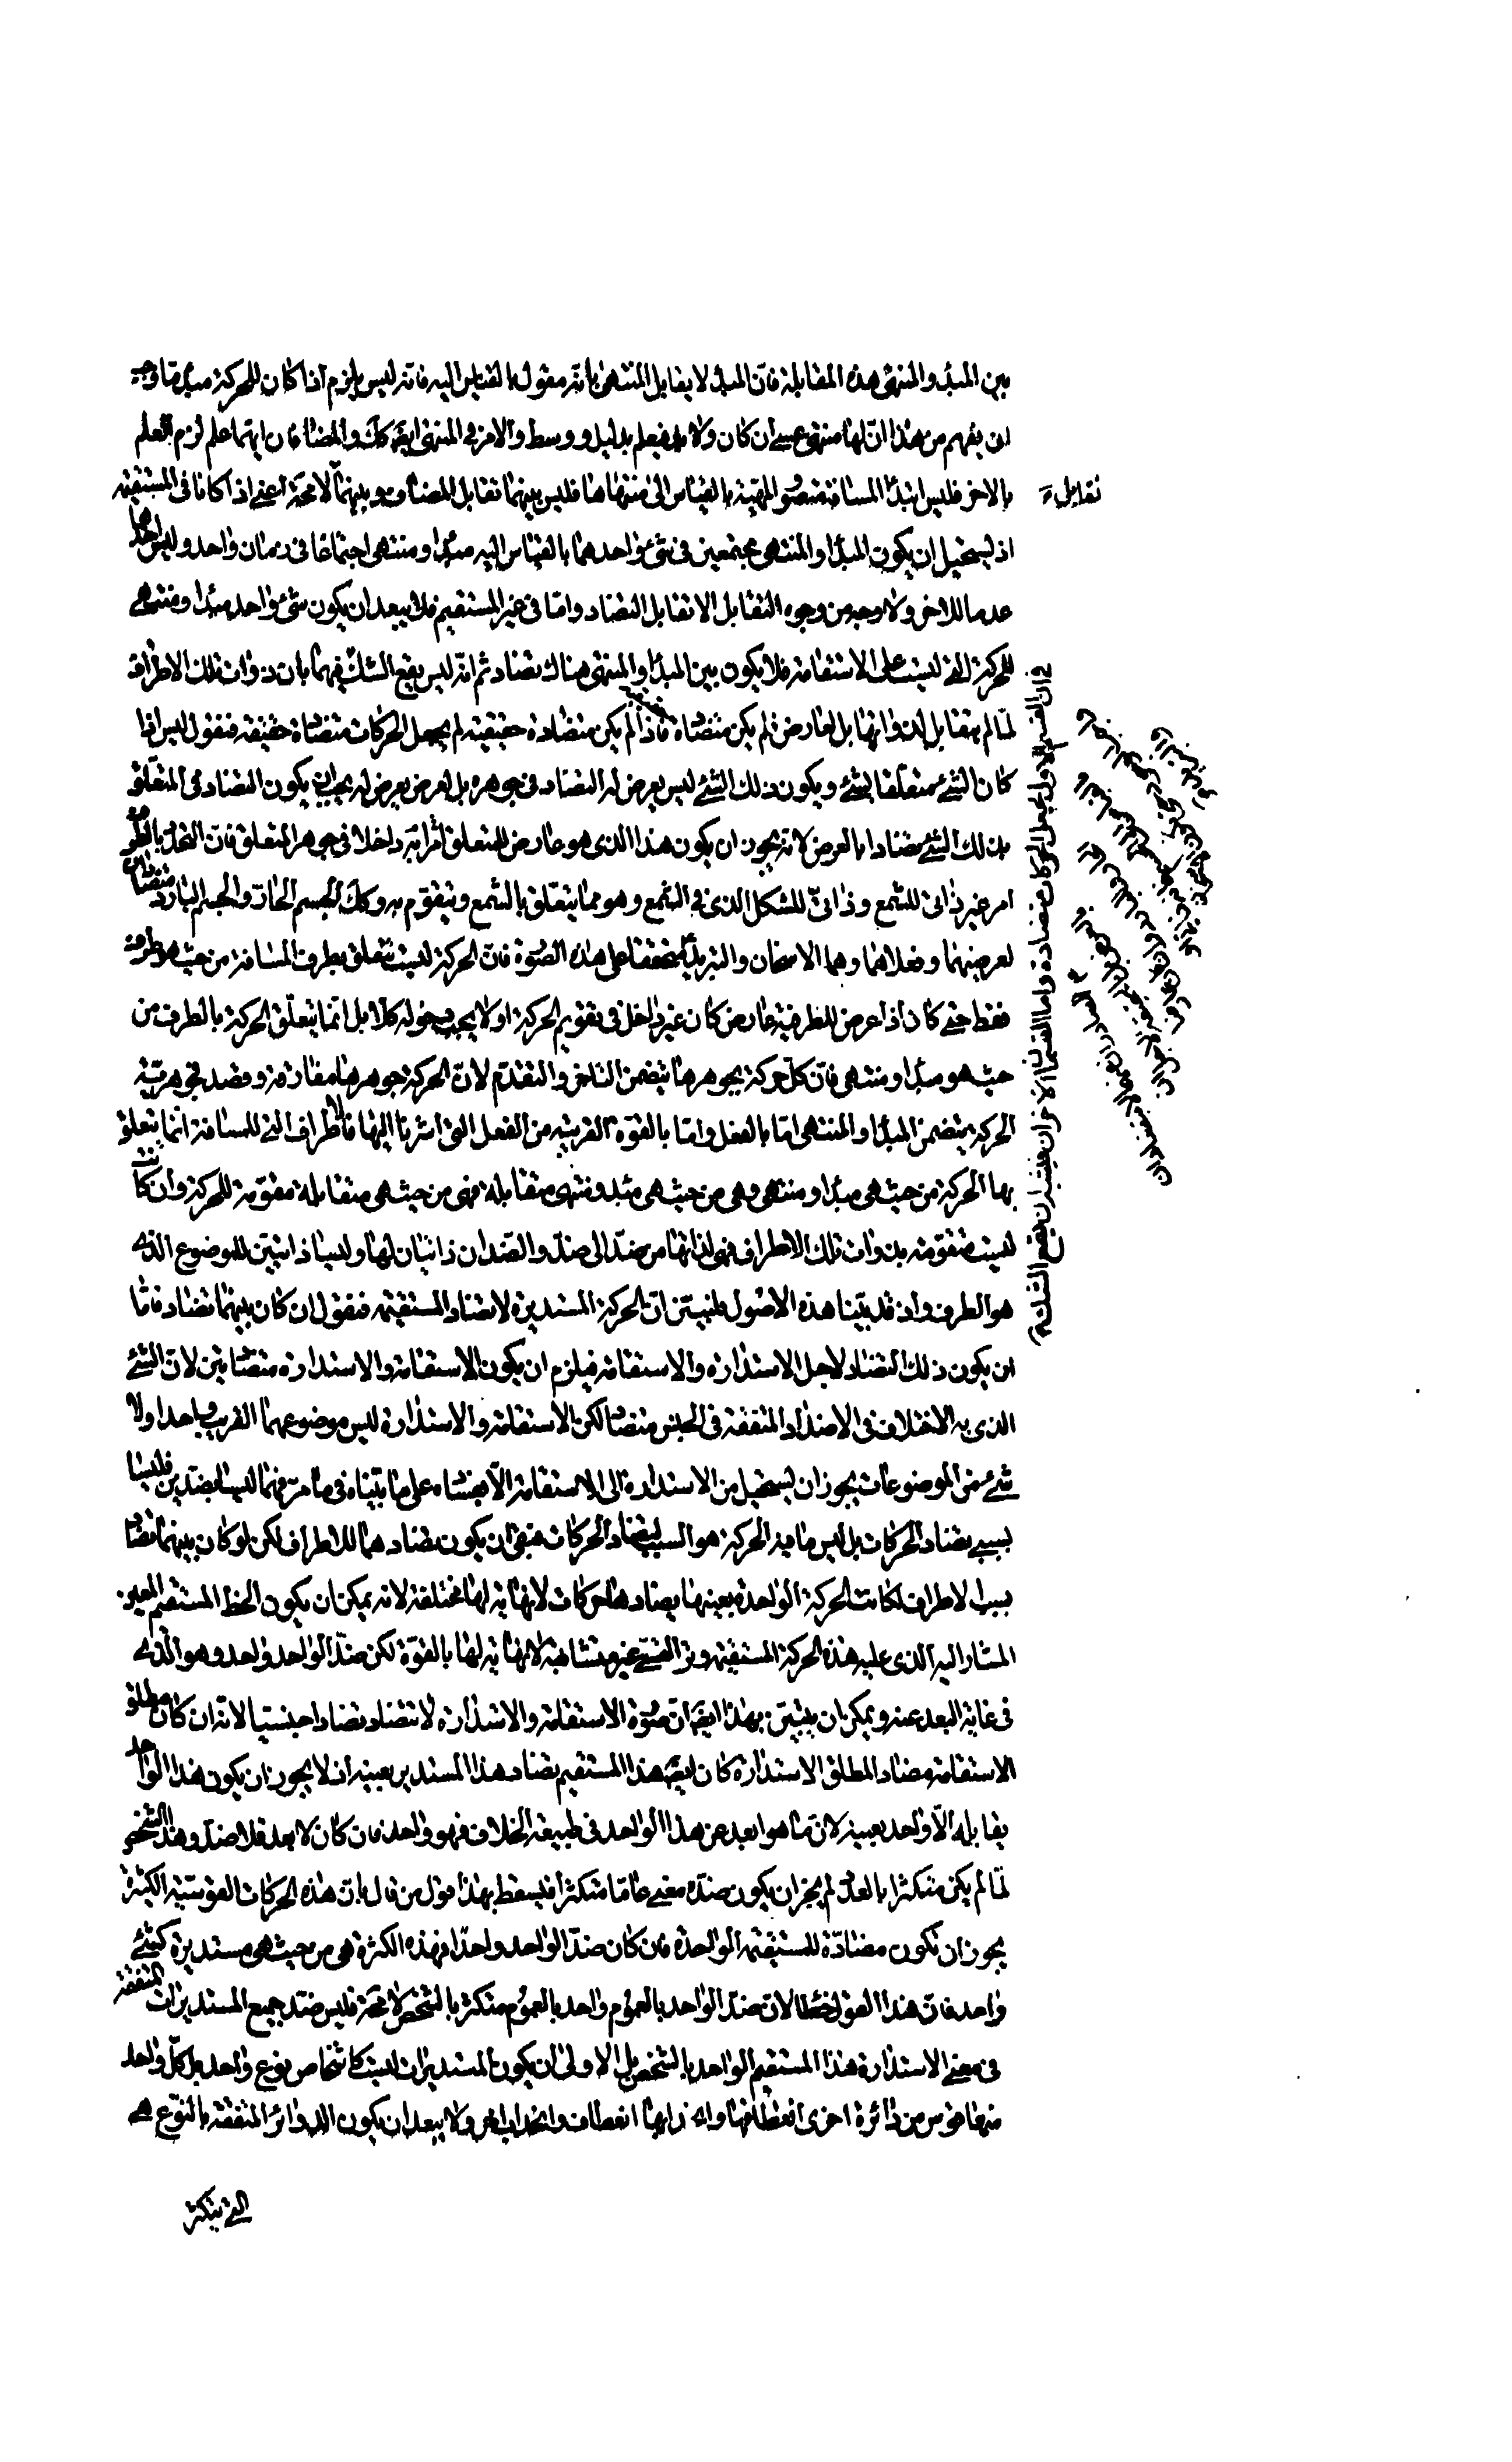 بين المبدأ والمنتهى هذه المقابلة فان المبدأ لا يقابل المنتهى بانه مقول بالقياس اليه فانه ليس يلزم اذا كان للحركة مبدأ ما وجب
ان يفهم من هذا ان لها منتهى عسى ان كان ولا بد فيعلم بدليل ووسط والامر فى المنتهى ايضا كك والمضافان ايهما علم لزم العلم
بالاخر فليس ابتداء المسافة متصور المهية بالقياس الى منتهاها فليس بينهما تقابل المضاف وبينهما لا محة اعنى اذا كانا فى المستقيمة
تقابل
اذ يستحيل ان يكون المبدأ والمنتهى مجتمعين فى شئ واحد هما بالقياس اليه مبدأ ومنتهى اجتماعا فى زمان واحد وليس احدهما
عدما للاخر ولا وجه من وجوه التقابل الا تقابل التضاد واما فى غير المستقيم فلا يبعد ان يكون شئ واحد مبدأ ومنتهى
للحركة التى ليست على الاستقامة فلا يكون بين المبدأ والمنتهى هناك تضاد ثم انه ليس يقع الشك فيهما بان ذوات تلك الاطراف
لما لم يتقابل لذواتها بل لعارض لم يكن متضادة فاذا لم يكن متضادة حقيقية لم يجعل الحركات متضادة حقيقة فنقول ليس اذا
كان الشئ متعلقا بشئ ويكون ذلك الشئ ليس يعرض له التضاد فى جوهره بل لعرض يعرض له يجب ان يكون التضاد فى المتعلق
بذلك الشئ تضادا بالعرض لانه يجوز ان يكون هذا الذى هو عارض للمتعلق به امرا داخلا فى جوهر المتعلق فان التحدد بالطرف
امر غير ذاتى للشمع وذاتى للشكل الذى فى الشمع وهو مما يتعلق بالشمع ويتقوم به وكك الجسم الحار والجسم البارد متضادان
لعرضيهما وفعلاهما وهما الاسخان والتبريد على هذه الصورة فان الحركة ليست تتعلق بطرف المسافة من حيث هو طرف
فقط حتى كان اذا عرض للطرفية عارض كان غير داخل فى تقويم الحركة او لا يجب دخوله كلا بل انما يتعلق الحركة بالطرف من
حيث هو مبدأ ومنتهى فان كل حركة بجوهرها يتضمن التاخر والتقدم لان الحركة جوهرها مفارقة وقصد فجوهرية
الحركة يتضمن المبدأ والمنتهى اما بالفعل واما بالقوة القريبة من الفعل التى اشرنا اليها فالاطراف التى للمسافة انما يتعلق
بها الحركة من حيث هى مبدأ ومنتهى وهى من حيث هى مبدأ ومنتهى متقابلة فهى من حيث هى متقابلة مقومة للحركة وان كانت
ليست متقومة بذوات تلك الاطراف فهى لذاتها من ضد الى ضد والضدان ذاتيان لها وليسا ذاتيين للموضوع الذى
هو الطرف واذ قد بينا هذه الاصول فلنبين ان الحركة المستديرة لا تضاد المستقيمة فنقول ان كان بينهما تضاد فاما
ان يكون ذلك التضاد لاجل الاستدارة والاستقامة فيلزم ان يكون الاستقامة والاستدارة متضادتين لان الشئ
الذى به الاختلاف فى الاضداد المتفقة فى الجنس متضاد لكن الاستقامة والاستدارة ليس موضوعهما القريب واحدا ولا
شئ من الموضوعات يجوز ان يستحيل من الاستدارة الى الاستقامة الا بفساده على ما بيناه فى ما مر فهما ليسا بضدين فليسا
بسبب تضاد الحركات بل ليس ما فيه الحركة هو السبب لتضاد الحركات فبقى ان يكون تضادهما للاطراف لكن لو كان بينهما تضاد
بسبب الاطراف لكانت الحركة الواحدة بعينها يضادها حركات لا نهاية لها مختلفة لانه يمكن ان يكون الخط المستقيم المعين
المشار اليه الذى عليه هذه الحركة المستقيمة وترا لقسى غير متشابهة لا نهاية لها بالقوة لكن ضد الواحد واحد وهو الذى
فى غاية البعد عنه ويمكن ان يتبين بهذا ايضا ان صورة الاستقامة والاستدارة لا تتضاد تضادا جنسيا لانه ان كان مطلق
الاستقامة مضادا لمطلق الاستدارة كان ايضا هذا المستقيم يضاد هذا المستدير بعينه اذ لا يجوز ان يكون هذا الواحد
يقابله الا واحد بعينه لان ما هو ابعد عن هذا الواحد فى طبيعة الخلاف فهو واحد فان كان لا ابعد فلا ضد وهذا الشخص
لما لم يكن متكثرا بالعدد لم يجز ان يكون ضده معنى عاما متكثرا فيسقط بهذا قول من قال بان هذه الحركات القوسية الكثيرة
يجوز ان تكون مضادة للمستقيمة الواحدة فان كان ضد الواحد واحدا فهذه الكثرة هى من حيث هى مستديرة كشئ
واحد فان هذا القول خطأ لان ضد الواحد بالعموم واحد بالعموم متكثر بالشخص لا محة فليس ضد جميع المستديرات المتفقة
فى معنى الاستدارة هذا المستقيم الواحد بالشخص بل الاولى ان يكون المستديرات ليست كاشخاص نوع واحد بل كل واحد
منها قوس من دائرة اخرى انعطافها وانحدابها انعطاف وانحداب اخر ولا يبعد ان يكون الدوائر المتفقة بالنوع هى
التى يتكثر
فى ان القسم الاول يجعل الحركات متضادة واما القسمان الاخران